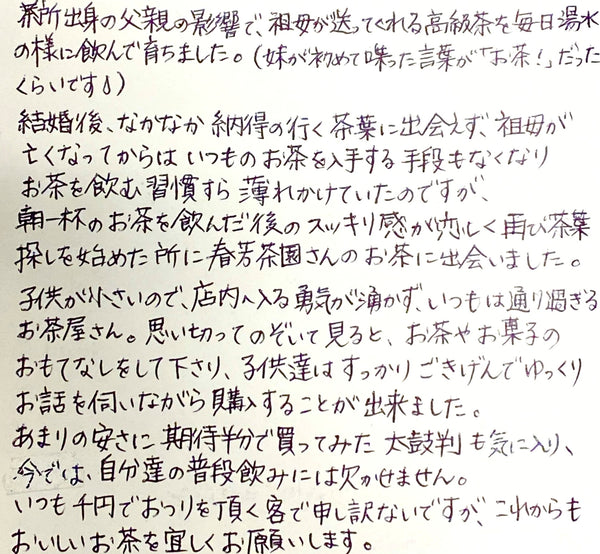 茶所出身の父親の影響で、祖母が送ってくれる高級茶を毎日湯水
の様に飲んで育ちました。(妹が初めて喋った言葉が「お茶!」だった
くらいです!)
結婚後、なかなか納得の行く茶葉に出会えず、祖母が
亡くなってからはいつものお茶を入手する手段もなくなり
お茶を飲む習慣すら薄れかけていたのですが、
朝一杯のお茶を飲んだ後のスッキリ感が恋しく再び茶葉
探しを始めた所に春芳茶園さんのお茶に出会いました。
子供が小さいので、店内へ入る勇気が湧かず、いつもは通り過ぎる
お茶屋さん。思い切ってのぞいて見ると、お茶やお菓子の
おもてなしをして下さり、子供達はすっかりごきげんでゆっくり
お話を伺いながら購入することが出来ました。
あまりの安さに期待半分で買ってみた太鼓判も気に入り、
今では、自分達の普段飲みには欠かせません。
いつも千円でおつりを頂く客で申し訳ないですが、これからも
おいしいお茶を宜しくお願いします。